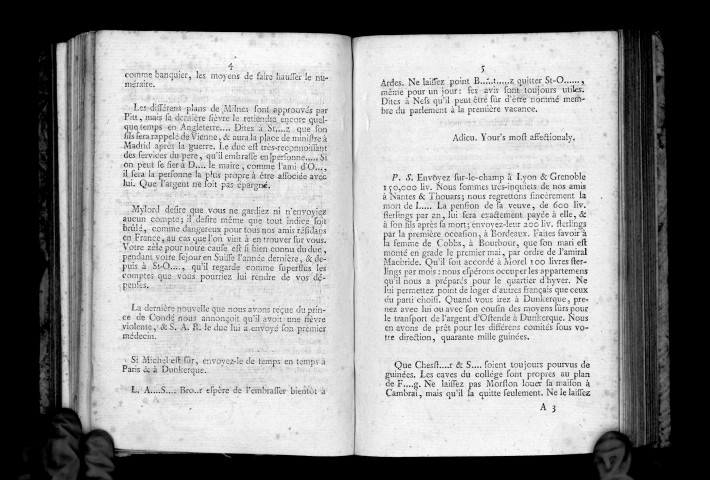 4
comme banquier, les moyens de faire hausser le nu-
méraire.
Les différens plans de Milnes sont approuvés par
Pitt, mais sa derniere fiévre le retiendra encore quel-
que temps en Angleterre.... Dites à St....z que son
fils sera rappelé de Vienne, & aura la place de ministre à
Madrid après la guerre. Le duc est très-reconnoissant
des services du pere, qu'il embrasse en personne.... Si
on peut se fier à D.... le maire, comme l'ami d'O...,
il sera la personne la plus propre à être associée avec
lui. Que l'argent ne soit pas épargné.
Mylord desire que vous ne gardiez ni n'envoyiez
aucun compte; il desire même que tout indice soit
brûlé, comme dangereux pour tous nos amis résidans
en France, au cas que l'on vint à en trouver sur vous.
Votre zèle pour notre cause est si bien connu du duc,
pendant votre séjour en Suisse l'année derniere, & de-
puis à St-O...., qu'il regarde comme superflus les
comptes que vous pourriez lui rendre de vos dé-
penses.
La derniere nouvelle que nous avons reçue du prin-
ce de Condé nous annonçoit qu'il avoit une fiévre
violente, & S. A. R. le duc lui a envoyé son premier
médecin.
Si Michel est sûr, envoyez-le de temps en temps à
Paris & à Dunkerque.
L. A....S.... Bro..r espère de l'embrasser bientôt à
5
Ardes. Ne laissez point B....t.....z quitter St-O......,
même pour un jour: ses avis sont toujours utiles.
Dites à Ness qu'il peut être sûr d'être nommé mem-
bre du parlement à la première vacance.
Adieu. Your's most affectionaly.
P. S. Envoyez sur-le-champ à Lyon & Grenoble
150,000 liv. Nous sommes très-inquiets de nos amis
à Nantes & Thouars; nous regrettons sincérement la
mort de I..... La pension de sa veuve, de 600 liv.
sterlings par an, lui sera exactement payée à elle, &
à son fils après sa mort; envoyez-leur 200 liv. sterlings
par la première occasion, à Bordeaux. Faites savoir à
la femme de Cobbs, à Bourbour, que son mari est
monté en grade le premier mai, par ordre de l'amiral
Macbride. Qu'il soit accordé à Morel 100 livres ster-
lings par mois: nous espérons occuper les appartemens
qu'il nous a préparés pour le quartier d'hyver. Ne
lui permettez point de loger d'autres français que ceux
du parti choisi. Quand vous irez à Dunkerque, pre-
nez avec lui ou avec son cousin des moyens sûrs pour
le transport de l'argent d'Ostende à Dunkerque. Nous
en avons de prêt pour les différens comités sous vo-
tre direction, quarante mille guinées.
Que Chest....r & S.... soient toujours pourvus de
guinées. Les caves du collége sont propres au plan
de F....g. Ne laissez pas Morston louer sa maison à
Cambrai, mais qu'il la quitte seulement. Ne le laissez
A 3